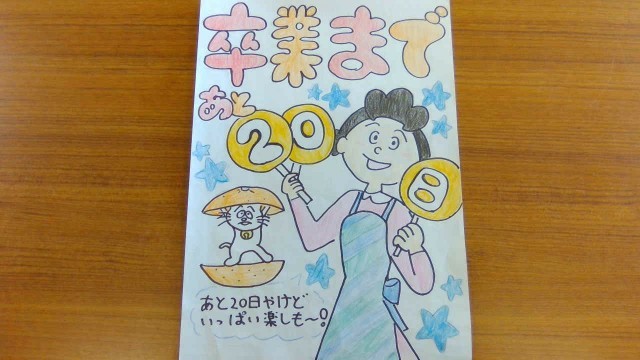 卒業まで
あと
20日
あと20日やけど
いっぱい楽しも〜!